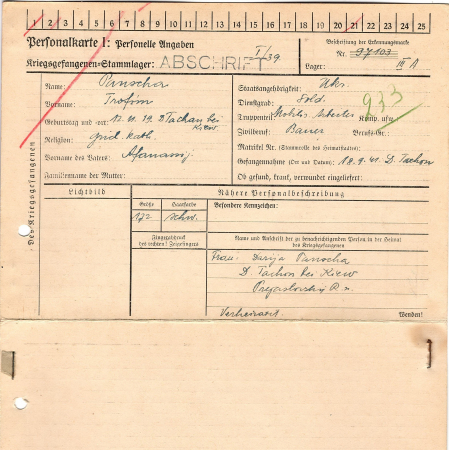 1 2 3 4 5 6 7 8 9 10 11 12 13 14 15 16 17 18 19 20 21 22 23 24 25
Personalkarte I: Personelle Angaben
Kriegsgefangenen-Stammlager: ABSCHRIFT I/39
Beschriftung der Erkennungsmarke
Nr. 97103
Lager: III A
Des Kriegsgefangenen
Name: Panscha
Vorname: Trofim
Geburtstag und -ort: D. Tachan bei Kiew
Religion: Griech. kath.
Vorname des Vaters: Afanassij
Familienname der Mutter:
Staatsangehörigkeit: Ukr.
Dienstgrad: Sold.
Truppenteil: Komp. usw.
Zivilberuf: Bauer Berufs-Gr.:
Matrikel Nr. (Stammrolle des Heimatstaates):
Gefangennahme (Ort und Datum): 18.9.41 D. Tachon
Ob gesund, krank, verwundet eingeliefert:
933
Lichtbild
Nähere Personalbeschreibung
Größe Haarfarbe
172 schw.
Besondere Kennzeichen:
Fingerabdruck
des rechten! Zeigefingers
Name und Anschrift der zu benachrichtigenden Person in der Heimat
des Kriegsgefangenen
Frau: Darija Panscha
D. Tachon bei Kiew
Verheiratet.